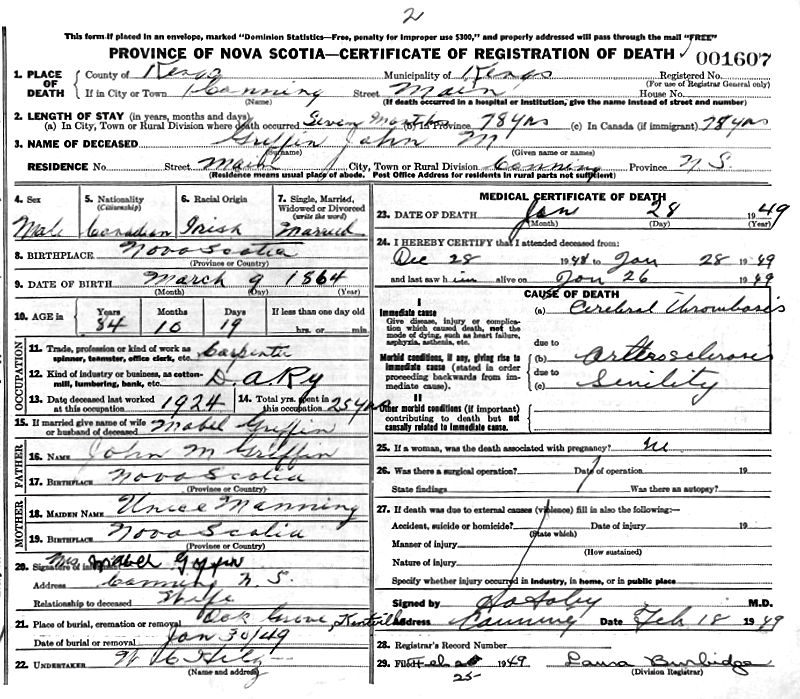 2
This form if placed in an envelope, marked "Dominion Statistics—Free, penalty for improper use $300," and properly addressed will pass through the mail "FREE"
PROVINCE OF NOVA SCOTIA—CERTIFICATE OF REGISTRATION OF DEATH
001607
1. PLACE OF DEATH County of Kings Municipality of Kings Registered No.
(For use of Registrar General only)
If in City or Town Canning Street Main House No.
(Name) (If death occurred in a hospital or institution, give the name instead of street and number)
2. LENGTH OF STAY (in years, months and days)
(a) In City, Town or Rural Division where death occurred Seven Months (b) In Province 78 yrs (c) In Canada (if immigrant) 78 yrs
3. NAME OF DECEASED Griffin John M
(Surname) (Given name or names)
RESIDENCE No. Street Main City, Town or Rural Division Canning Province N S.
(Residence means usual place of abode. Post Office Address for residents in rural parts not sufficient)
4. Sex 5. Nationality (Citizenship) 6. Racial Origin 7. Single, Married, Widowed or Divorced (write the word)
Male Canadian Irish Married
8. BIRTHPLACE Nova Scotia
(Province or Country)
9. DATE OF BIRTH March 9 1864
(Month) (Day) (Year)
10. AGE in Years Months Days If less than one day old
84 10 19 hrs. or min.
OCCUPATION
11. Trade, profession or kind of work as spinner, teamster, office clerk, etc. Carpenter
12. Kind of industry or business, as cotton-mill, lumbering, bank, etc. D. A Ry
13. Date deceased last worked at this occupation 1924 14. Total yrs. spent in this occupation 25 yrs
15. If married give name of wife or husband of deceased Mabel Griffin
FATHER
16. NAME John M Griffin
17. BIRTHPLACE Nova Scotia
(Province or Country)
MOTHER
18. MAIDEN NAME Unice Manning
19. BIRTHPLACE Nova Scotia
(Province or Country)
20. Signature of informant Mrs. Mabel Griffin
Address Canning N. S.
Relationship to deceased Wife
21. Place of burial, cremation or removal Oak Grove, Kentville
Date of burial or removal Jan 30/49
22. UNDERTAKER W
(Name and address)
MEDICAL CERTIFICATE OF DEATH
23. DATE OF DEATH Jan 28 1949
(Month) (Day) (Year)
24. I HEREBY CERTIFY that I attended deceased from:
Dec 28 1948 to Jan 28 1949
and last saw him alive on Jan 26 1949
CAUSE OF DEATH
I
Immediate cause
Give disease, injury or complication which caused death, not the mode of dying, such as heart failure, asphyxia, asthenia, etc.
(a) Cerebral Thrombosis
due to
Morbid conditions, if any, giving rise to immediate cause (stated in order proceeding backwards from immediate cause).
(b) Arterosclerosis
due to
(c) Senility
II
Other morbid conditions (if important) contributing to death but not causally related to immediate cause.
25. If a woman, was the death associated with pregnancy?
26. Was there a surgical operation? Date of operation 19
State findings Was there an autopsy?
27. If death was due to external causes (violence) fill in also the following:—
Accident, suicide or homicide? Date of injury 19
(State which)
Manner of injury
(How sustained)
Nature of injury
Specify whether injury occurred in industry, in home, or in public place
Signed by M.D.
Address Canning Date Feb 18 1949
28. Registrar's Record Number
29. Filed Feb 1949 Laura Burbidge
25- (Division Registrar)